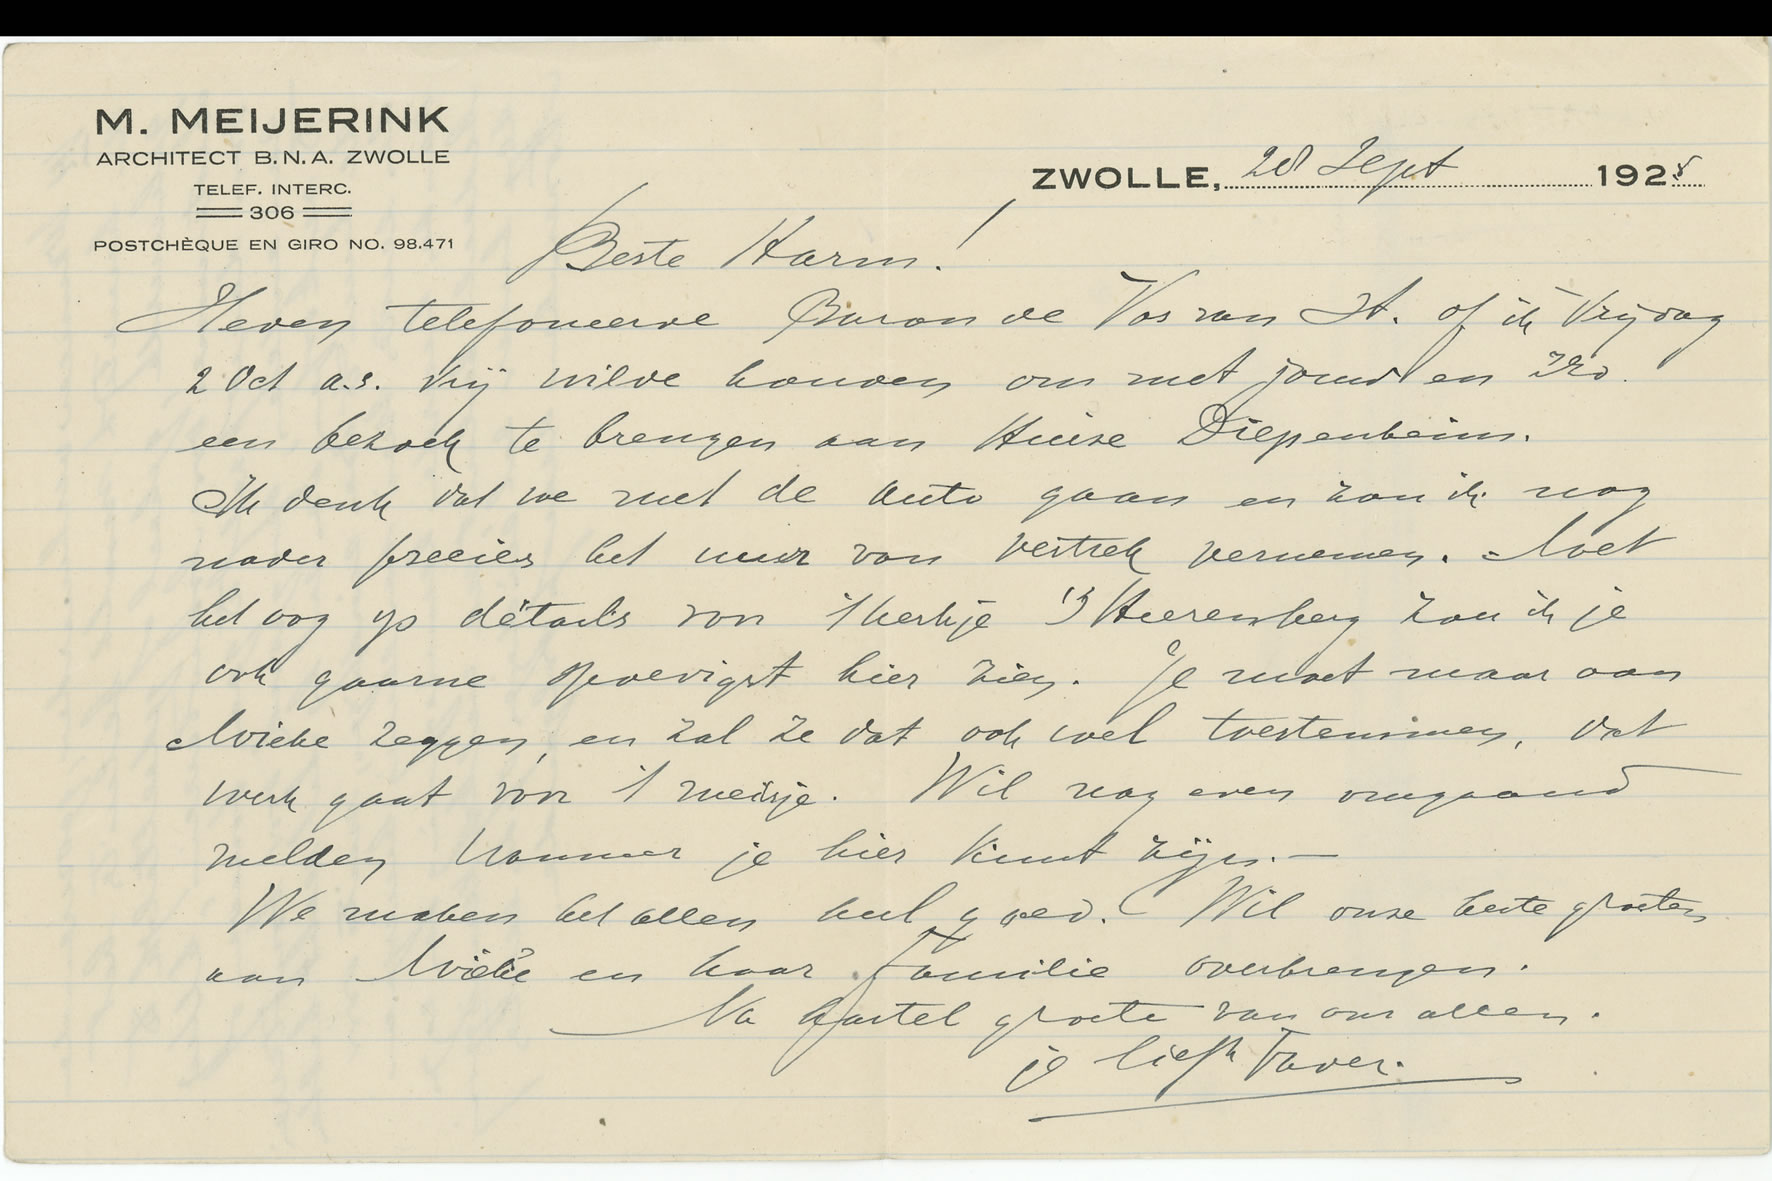 M. MEIJERINK
ARCHITECT B.N.A. ZWOLLE
TELEF. INTERC.
306
POSTCHÈQUE EN GIRO NO. 98.471
ZWOLLE, 28 Sept 1925
Beste Harm!
Heden telefoneerde Baron de Vos van St. of ik Vrijdag
2 Oct a.s. vrij wilde houden om met jou en
een bezoek te brengen aan Huize Diepenheim.
Ik denk dat we met de auto gaan en zou ik nog
nader precies het uur van vertrek vernemen. Met
het oog op détails voor 't kerkje 's Heerenberg zou ik je
ook gaarne hier zien. Je moet maar aan
Mieke zeggen, en zal ze dat ook wel toestemmen, dat
werk gaat voor 't meisje. Wil nog even omgaand
melden wanneer je hier kunt zijn. —
We maken het allen heel goed. Wil onze beste groeten
aan Mieke en haar familie overbrengen.
Na hartel groete van ons allen.
je liefh Vader.